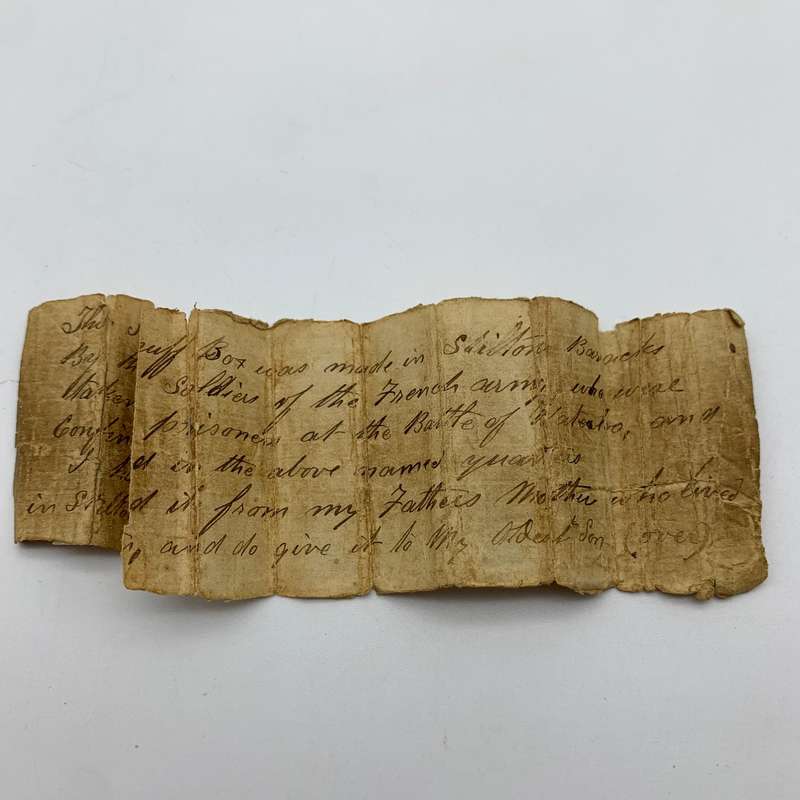 The Snuff Box was made in Stilton Baracks
By Soldiers of the French army who were
taken prisoners at the Battle of Waterloo, and
Confined in the above named quarters
I had it from my Fathers Mother who lived
in Stilton, and do give it to My Oldest Son (over)